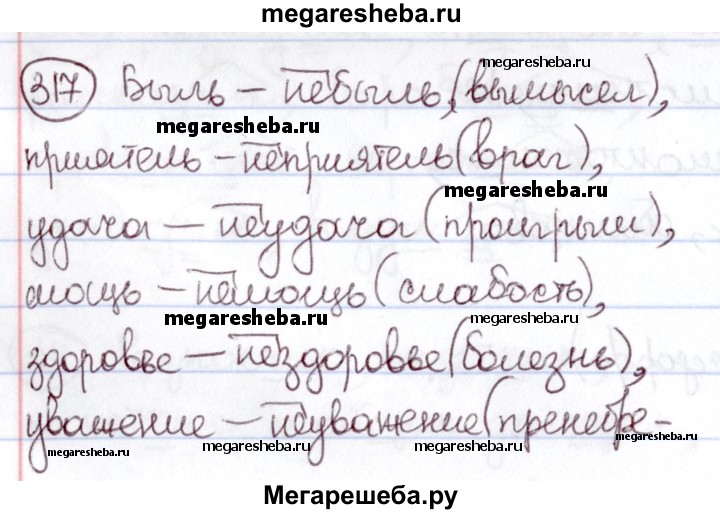 megaresheba.ru
317 Быль – небыль, (вымысел),
megaresheba.ru
megaresheba.ru
приятель – неприятель (враг),
megaresheba.ru
удача – неудача (проигрыш),
megaresheba.ru
мощь – немощь (слабость),
megaresheba.ru
megaresheba.ru
здоровье – нездоровье (болезнь),
уважение – неуважение (пренебре-
megaresheba.ru
megaresheba.ru
megaresheba.ru
megaresheba.ru
Мегарешеба.ру